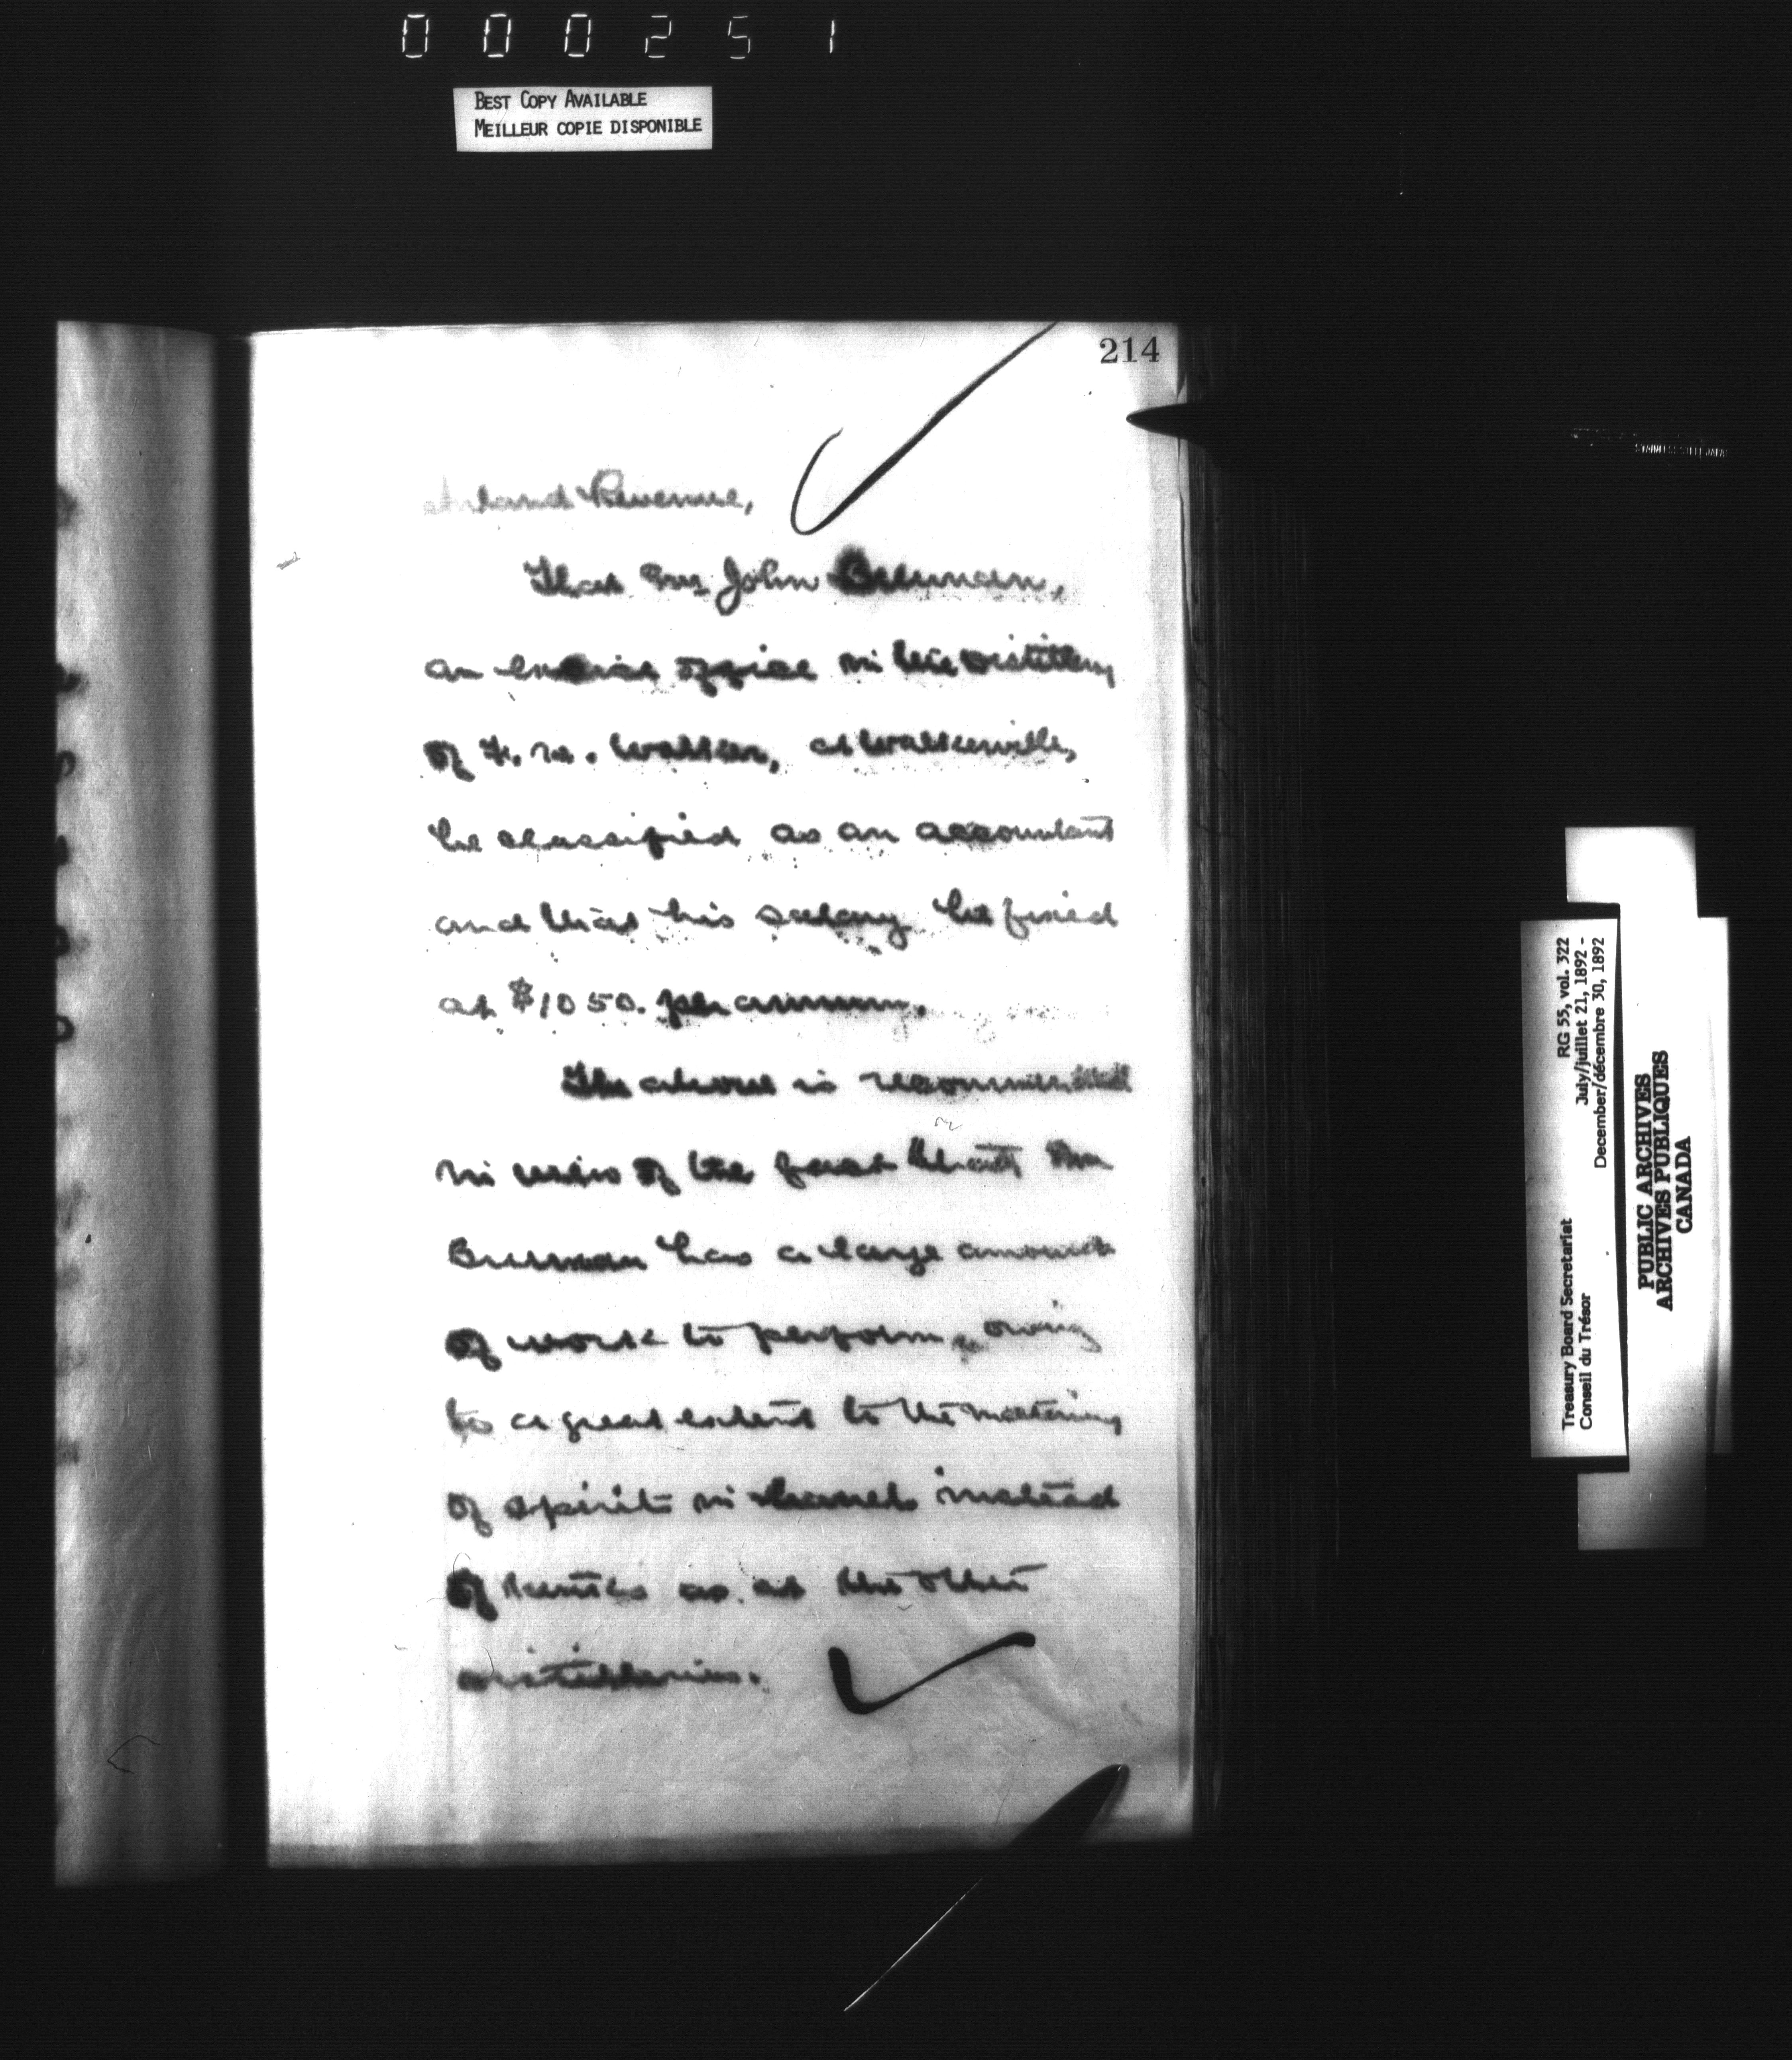 000251
BEST COPY AVAILABLE
MEILLEUR COPIE DISPONIBLE
214
Inland Revenue,
That Mr John Brennan,
an excise officer in the distillery
of H. W. Walker, at Walkerville,
be classified as an accountant
and that his salary be fixed
at $1050. per annum.
The above is recommended
in view of the fact that Mr
Brennan has a large amount
of work to perform, owing
to a great extent to the maturing
of spirits in barrels instead
of as at the other
distilleries.
STAINLESS STEEL JAPAN
Treasury Board Secretariat RG 55, vol. 322
Conseil du Trésor July/juillet 21, 1892 -
December/décembre 30, 1892
PUBLIC ARCHIVES
ARCHIVES PUBLIQUES
CANADA